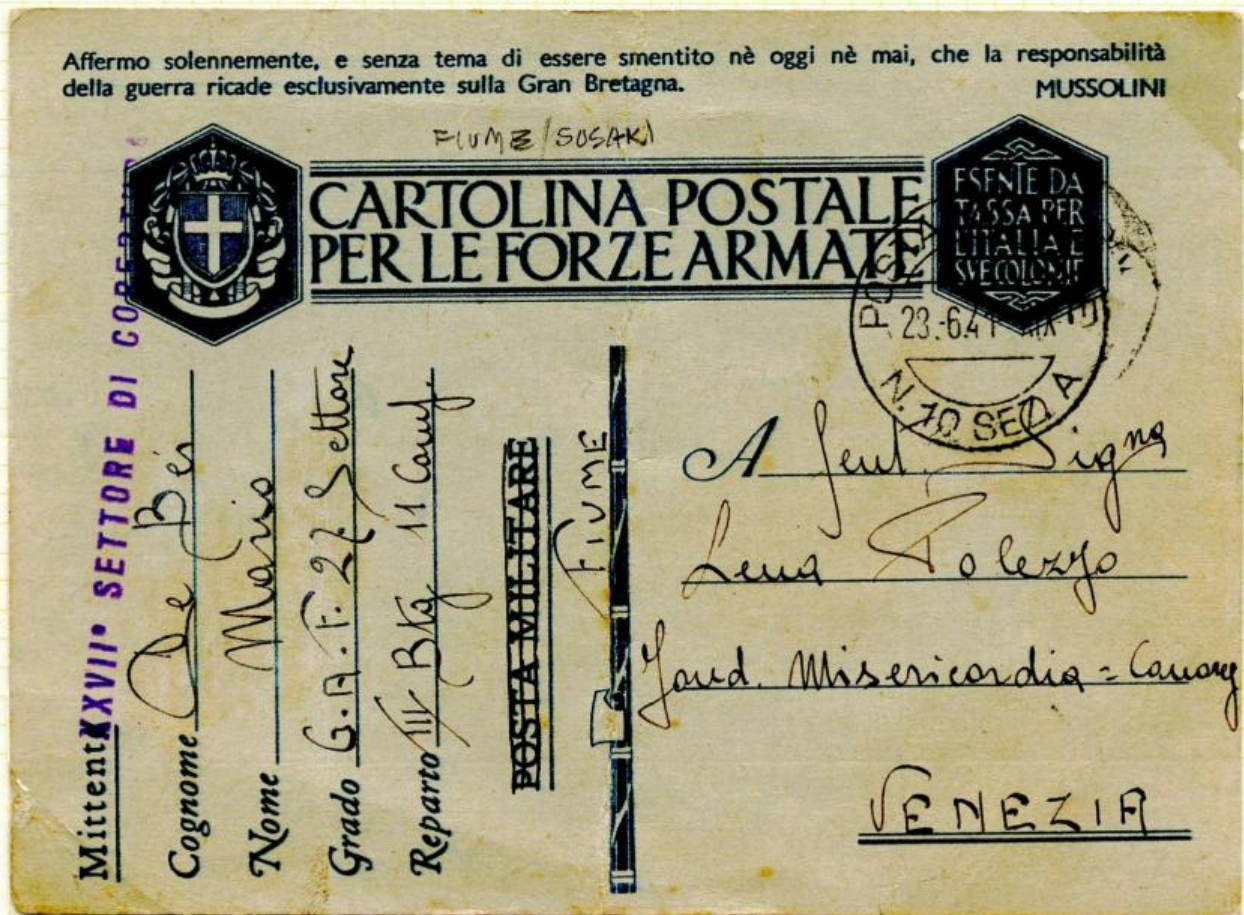 Affermo solennemente, e senza tema di essere smentito nè oggi nè mai, che la responsabilità
della guerra ricade esclusivamente sulla Gran Bretagna.
MUSSOLINI
FIUME/SUSAK
CARTOLINA POSTALE
PER LE FORZE ARMATE
ESENTE DA
TASSA PER
L'ITALIA E
SUE COLONIE
23.-6.41
N. 10 SEZ. A
XXVII° SETTORE DI
Mittente
Cognome De Bei
Nome Mario
Grado G.A.F. 27. Settore
Reparto III Btg 11
POSTA MILITARE
FIUME
A Gent. Signa
Lena Polezzo
Fond. Misericordia =
VENEZIA